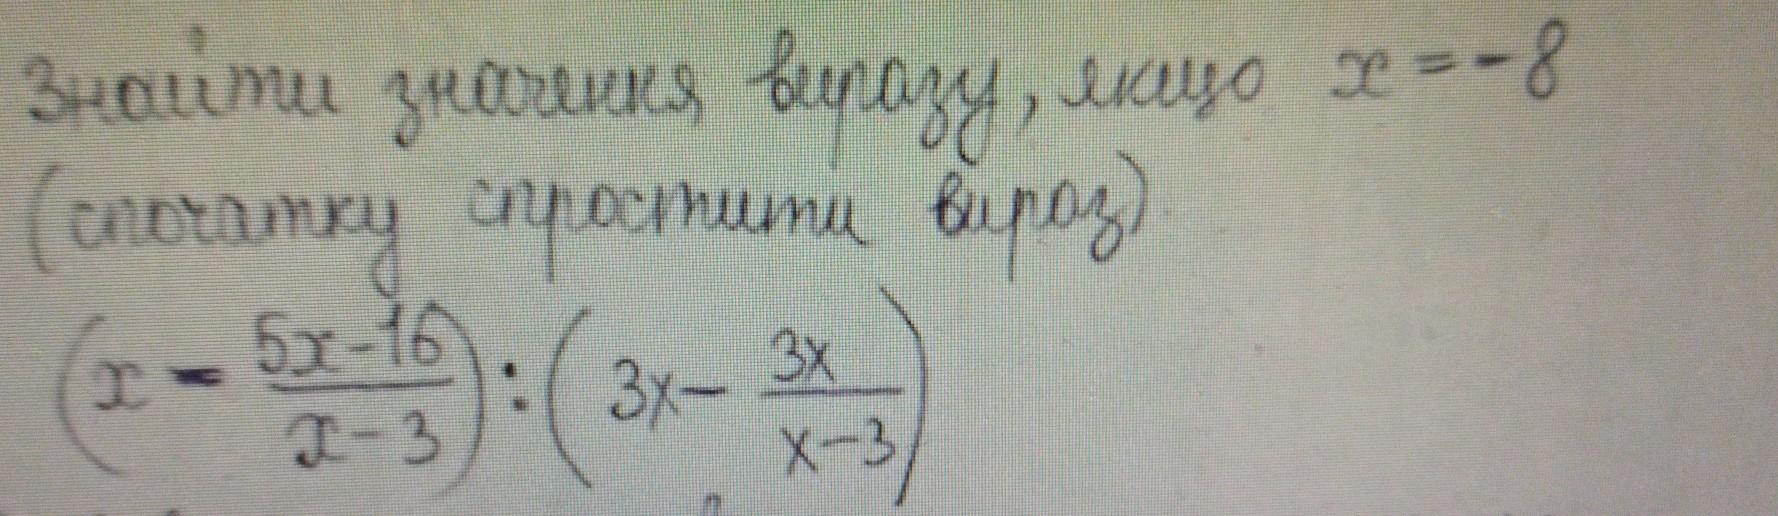 Знайти значення виразу, якщо x = -8
(спочатку спростити вираз)
(x - \frac{5x-16}{x-3}) : (3x - \frac{3x}{x-3})